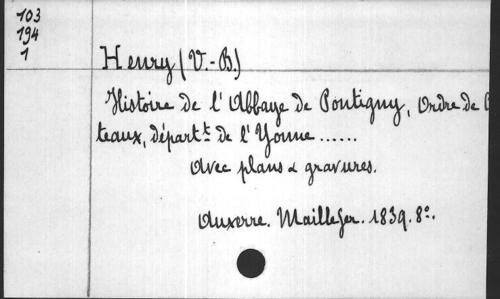 103
194
1
Henry (V.-B.)
Histoire de l'Abbaye de Pontigny, Ordre de C
teaux, départt. de l'Yonne ......
Avec plans & gravures.
Auxerre. Maillefer. 1839. 8º.